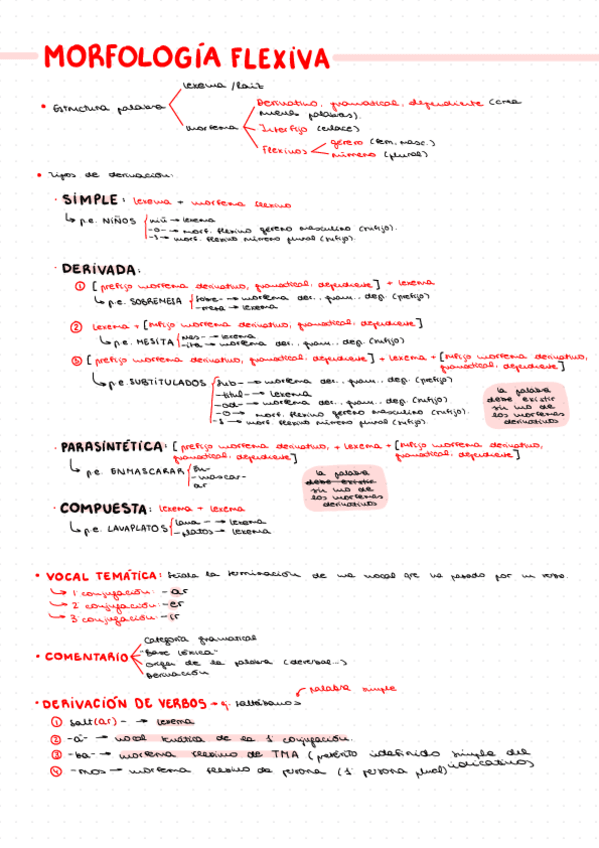 MORFOLOGÍA FLEXIVA
lexema / raíz
• Estructura palabra
Derivativo, gramatical, dependiente (crea
nuevas palabras).
morfema
Interfijo (enlace)
Flexivos
género (fem, masc.)
número (plural)
• Tipos de derivación:
· SIMPLE: lexema + morfema flexivo
p.e. NIÑOS
niñ → lexema
-o- → morf. flexivo género masculino (sufijo).
-s → morf. flexivo número plural (sufijo).
· DERIVADA:
① [prefijo morfema derivativo, gramatical, dependiente] + lexema
p.e. SOBREMESA
sobre- → morfema der., gram., dep. (prefijo)
-mesa → lexema
② lexema + [sufijo morfema derivativo, gramatical, dependiente]
p.e. MESITA
mes- → lexema
-ita → morfema der., gram., dep. (sufijo)
[prefijo morfema derivativo, gramatical, dependiente] + lexema + [sufijo morfema derivativo,
gramatical, dependiente]
p.e. SUBTITULADOS
sub- → morfema der., gram., dep. (prefijo)
-titul- → lexema
-ad- → morfema der., gram., dep. (sufijo)
-o → morf. flexivo género masculino (sufijo).
-s → morf. flexivo número plural (sufijo).
la palabra
debe existir
sin uno de
los morfemas
derivativos
· PARASINTÉTICA: [prefijo morfema derivativo, + lexema + [sufijo morfema derivativo,
gramatical, dependiente] gramatical, dependiente]
p.e. ENMASCARAR
En-
-mascar-
-ar
la palabra
debe existir
sin uno de
los morfemas
derivativos
· COMPUESTA: lexema + lexema
p.e. LAVAPLATOS
lava- → lexema
-platos → lexema
• VOCAL TEMÁTICA: señala la terminación de una vocal que ha pasado por un verbo.
1 conjugación: -ar
2 conjugación: -er
3 conjugación: -ir
• COMENTARIO
Categoría gramatical
"Base léxica"
Origen de la palabra (deverbal...)
Derivación
palabra simple
• DERIVACIÓN DE VERBOS → ej. saltábamos
① salt(ar)- → lexema
② -a- → vocal temática de la 1 conjugación.
③ -ba- → morfema flexivo de TMA (pretérito indefinido simple del
indicativo)
④ -mos → morfema flexivo de persona (1 persona plural)